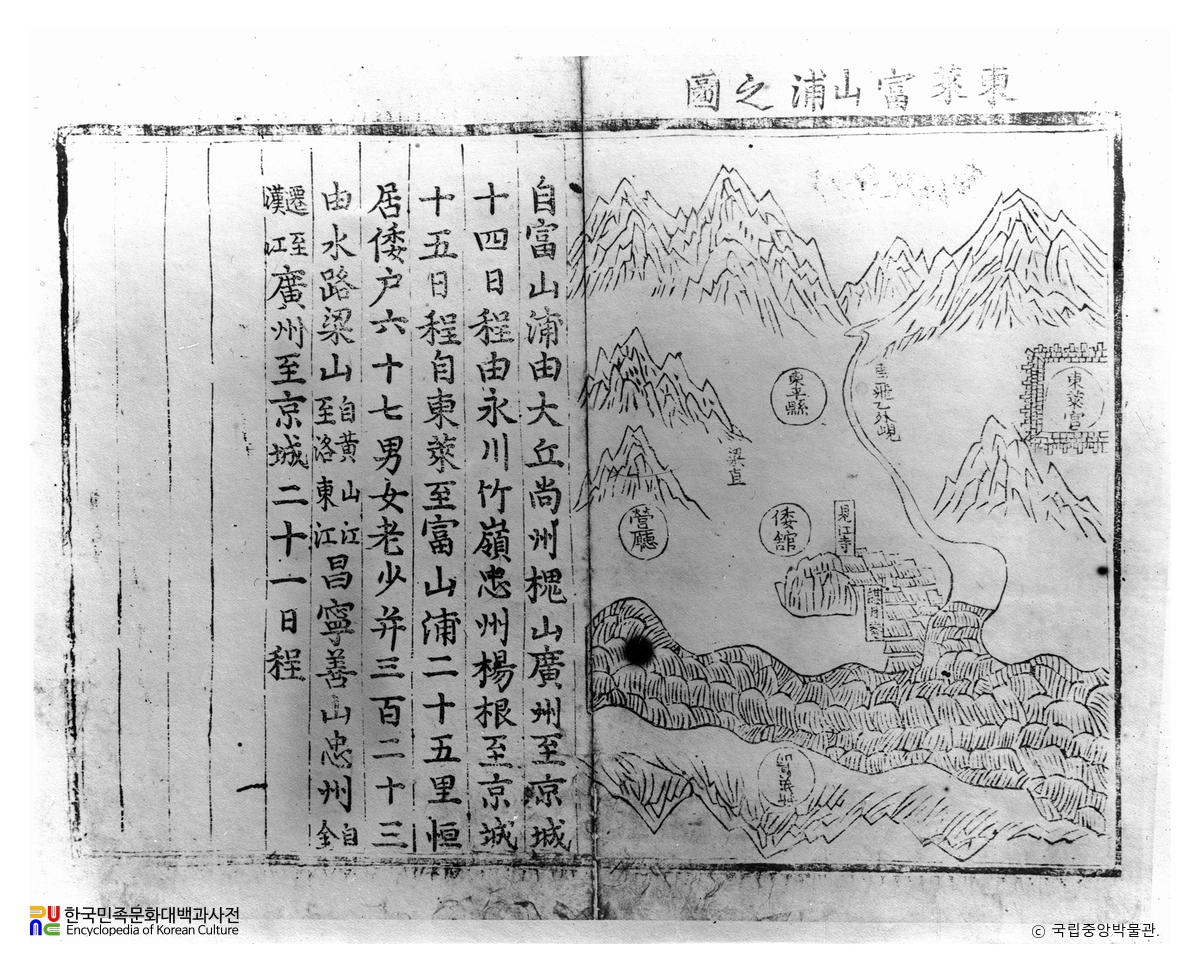 東萊富山浦之圖
東萊官
東平縣
梁直
見江寺
倭館
營廳
自富山浦由大丘尚州槐山廣州至京城
十四日程由永川竹嶺忠州楊根至京城
十五日程自東萊至富山浦二十五里恒
居倭户六十七男女老少并三百二十三
由水路梁山自黃山江至洛東江昌寧善山忠州自金
遷至漢江廣州至京城二十一日程
한국민족문화대백과사전
Encyclopedia of Korean Culture
© 국립중앙박물관.